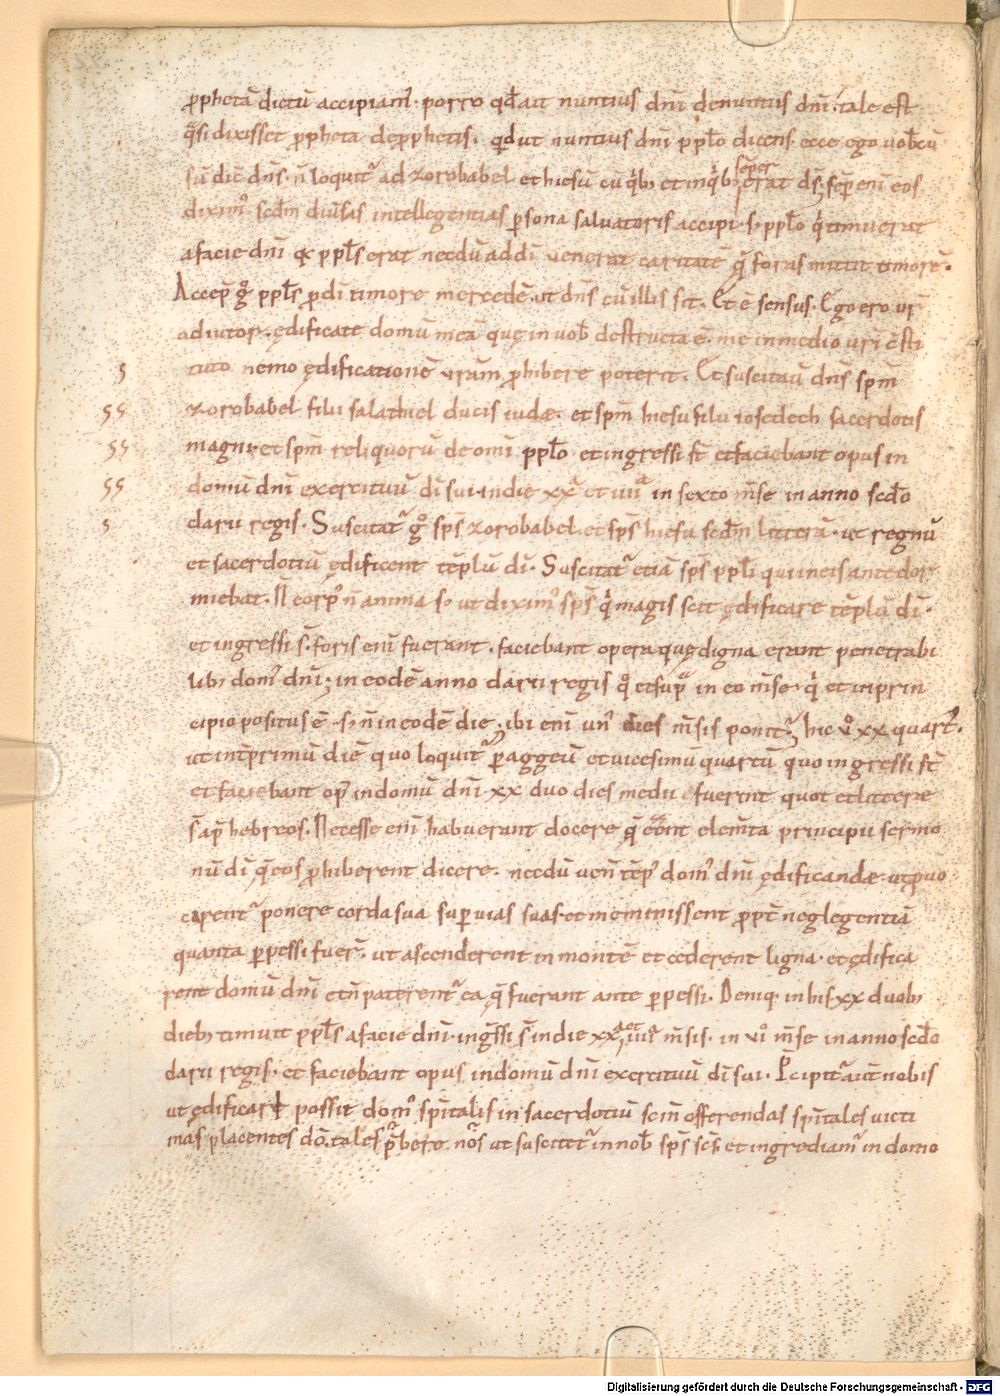 ꝓphetā dictū accipiam᷒· porro qd̄ ait nuntius dn̄i de nuntiis dn̄i· tale est
q̄si dixisset ꝓpheta de ꝓphetis· qd ut nuntius dn̄i ppl̄o dicens· ecce ego uob̄cū
sū dic̄ dn̄s· n̄ loquit᷑ ad zorobabel et hiesū cū qͥb; et in qͥb; sēper erat ds̄; sēp enī eos
dixim᷒ scd̄m diūsas intellegentias ꝑsona saluatoris accipi· s; ppl̄o qͥ timuerat
a facie dn̄i & ppl̄s erat necdū ad dī uenerat caritatē q̄ foras mittit timorē·
Accep̄ gͦ ppl̄s ꝓ dī timore mercedē· ut dn̄s cū illis sit· Et ē sensus· Ego ero ur̄
adiutor· ędificate domū meā que in uob̄ destructa ē· me in medio ur̄i c̄sti
tuto nemo ędificationē ur̄am ꝓhibere poterit· Et suscitau̅ dn̄s sp̄m
zorobabel filii salathiel ducis iudæ· et sp̄m hiesu filii iosedech sacerdotis
magni· et sp̄m reliquorū de om̄i ppl̄o· et ingressi st̄ et faciebant opus in
domū dn̄i exercituū dī sui· in die xxᵃ et iiiiᵃ in sexto m̄se in anno scd̄o
darii regis· Suscitat᷑ gͦ sp̄s zorobabel et sp̄s hiesu scd̄m litterā· ut regnū
et sacerdotiū ędificent tēplū dī· Suscitat᷑ etiā sp̄s ppl̄i qui in eis ante dor
miebat· N̄ corp᷒ n̄ anima s; ut dixim᷒ sp̄s qͥ magis scit ędificare tēplū dī·
et ingressi s̄· foris enī fuerant· faciebant opera quę digna erant penetrabi
lib; dom᷒ dn̄i; in eodē anno darii regis qͦ et supᵃ in eo m̄se· qͥ et in prin
cipio positus ē· s; n̄ in eodē die; ibi enī un᷒ dies m̄sis ponit᷑; hic uͦ xx quart᷒·
ut int̄ primū diē quo loquit᷑ ꝑ aggeū et uicesimū quartū quo ingressi st̄
et faciebant op᷒ in domū dn̄i· xx duo dies medii fuerint quot et littere
s̄ ap̄ hebreos· Necesse enī habuerant docere q̄ eēnt elem̄ta principii sermo
nū dī q̄ eos ꝓhiberent dicere· necdū ven̄ tēp᷒ dom᷒ dn̄i ędificandæ· ut ꝓuo
carent᷑ ponere corda sua suꝑ uias suas· et meminissent ꝓpt̄ neglegentiā
quanta ꝑpessi fuer̄· ut ascenderent in montē et cederent ligna· et ędifica
rent domū dn̄i et n̄ paterent᷑ ea q̄ fuerant ante ꝑpessi· Deniq· in his xx duob;
dieb; timuit ppl̄s a facie dn̄i· ingr̄ssi s̄ in die xxᵃ et iiiiᵃ m̄sis· in viͦ m̄se in anno scd̄o
darii regis· et faciebant opus in domū dn̄i exercituū dī sui· P̄cipit᷑ aut̄ nobis
ut ędificari possit dom᷒ sp̄italis in sacerdotiū sc̄m offerendas sp̄itales uicti
mas placentes dō· tales p̄bere nōs ut suscitet᷑ in nob̄ sp̄s sc̄s· et ingrediam᷒ in domo
Digitalisierung gefördert durch die Deutsche Forschungsgemeinschaft - DFG